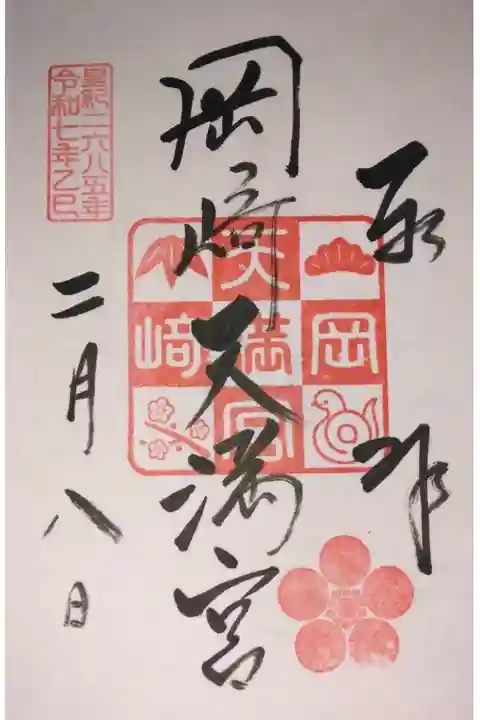 奉拝
岡崎天満宮
岡
天満宮
崎
皇紀二六八五年
令和七年乙巳
二月八日